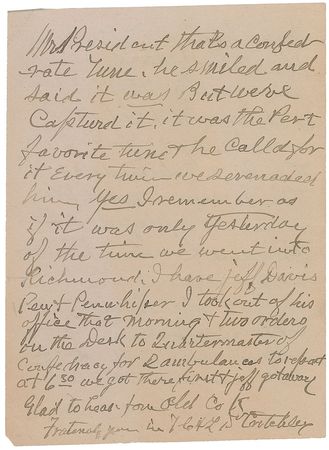 Mr President thats a confed
rate Tune. he smiled and
said it was But weve
Capturd it. it was the Pert
favorite tune & he Calld for
it Every time we serenaded
him, Yes I remember as
if it was only Yesterday
of the time we went into
Richmond, I have Jeff Davis
Pen & Penwhiper I took out of his
office that morning & two orders
on the Desk to Quartermaster of
Confedracy for 2 ambulances to report
at 6 30 we got there first & Jeff got away
Glad to hear from Old Co K
Fraternaly yours in F C & L